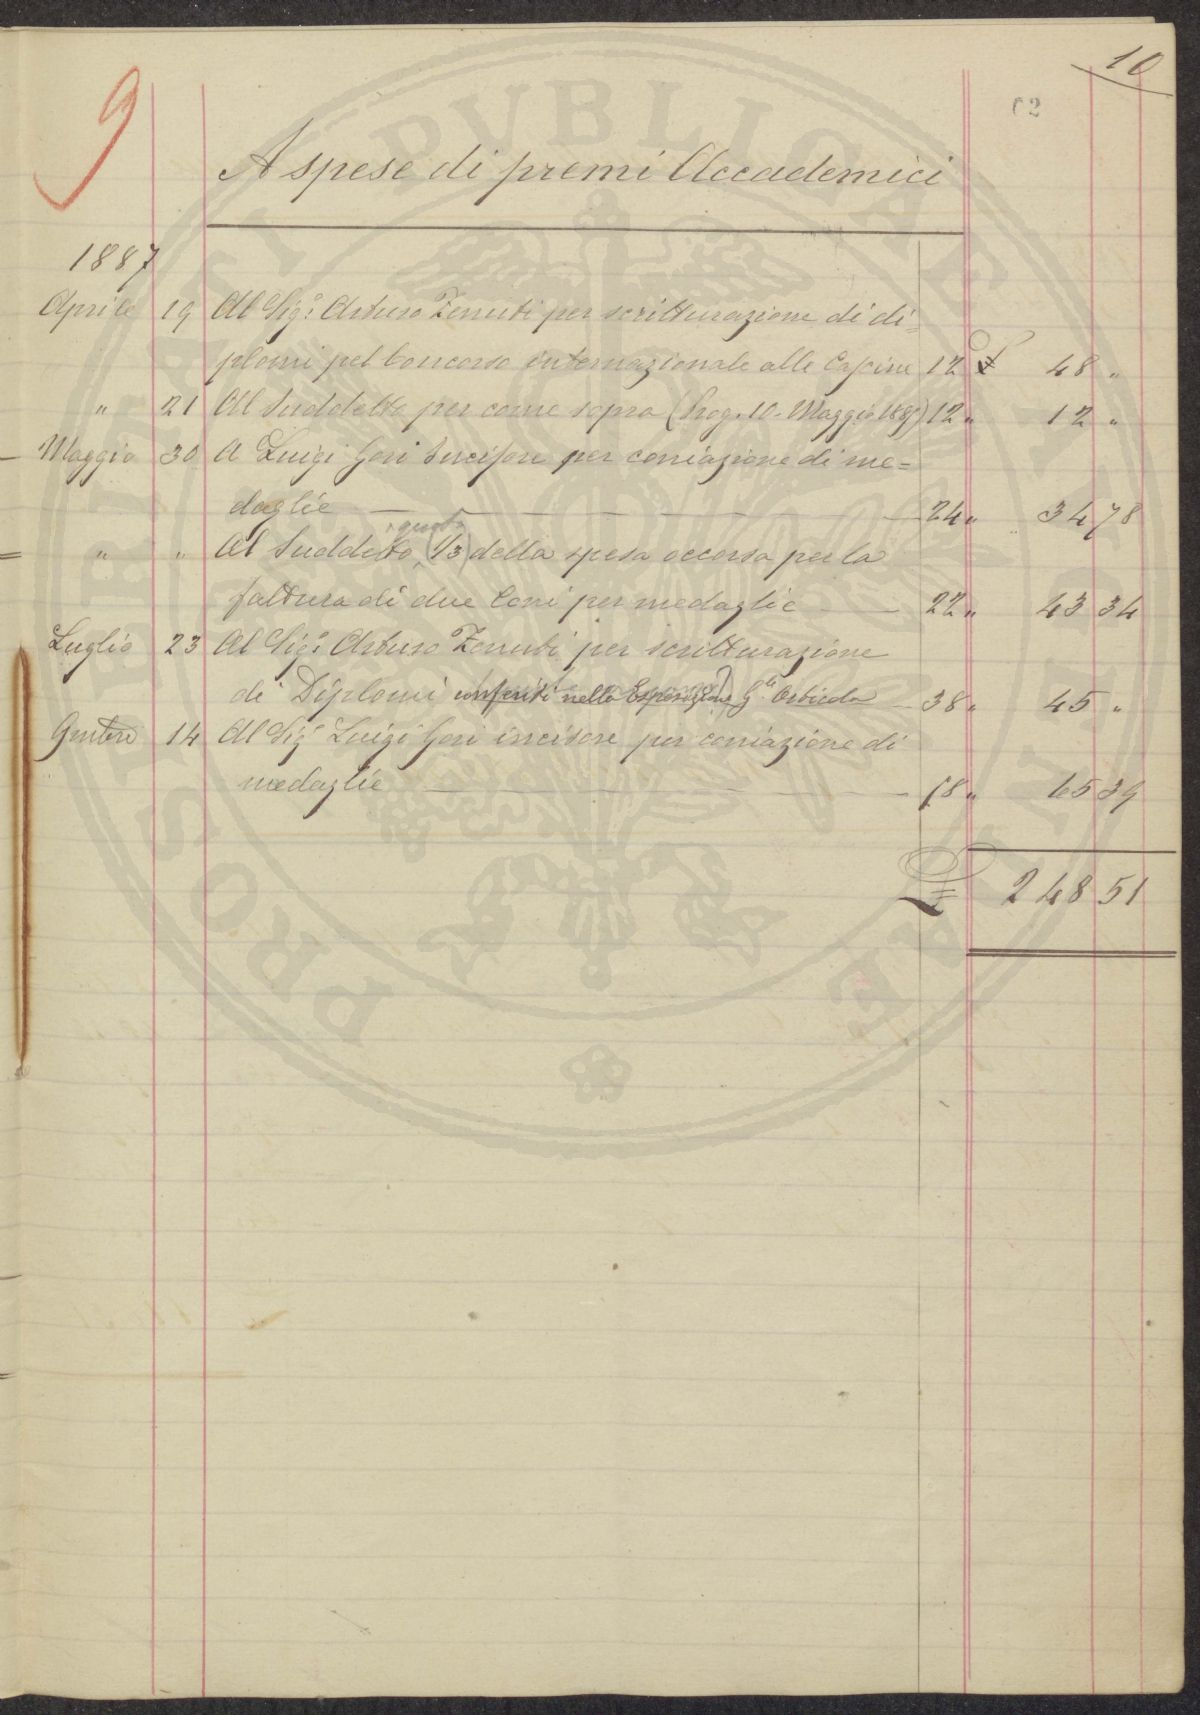 10
62
9
A spese di premi Accademici
1887
Aprile 19 Al Sig.r Arturo Zenuti per scritturazione di di=
plomi pel Concorso internazionale alle Cascine 12 £ 48 "
" 21 Al Suddetto per come sopra (Prog. 10. Maggio 1887) 12 " 12 "
Maggio 30 A Luigi Gori Incisore per coniazione di me=
daglie 24 " 34 78
quota
" " Al Suddetto (1/3) della spesa occorsa per la
fattura di due Coni per medaglie 22 " 43 34
Luglio 23 Al Sig.r Arturo Zenuti per scritturazione
di Diplomi conferiti nella Esposizione G.le Orticola 38 " 45 "
14 Al Sig.r Luigi Gori incisore per coniazione di
medaglie 18 " 65 39
£ 248 51
PROSPERITATI PUBLICAE AUGENDAE